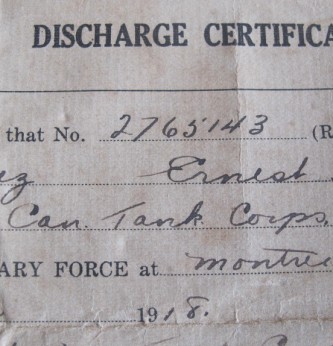 DISCHARGE CERTIFICA
that No. 2765143 (R
ez Ernest
Can. Tank Corps.
ARY FORCE at Montre
1918.